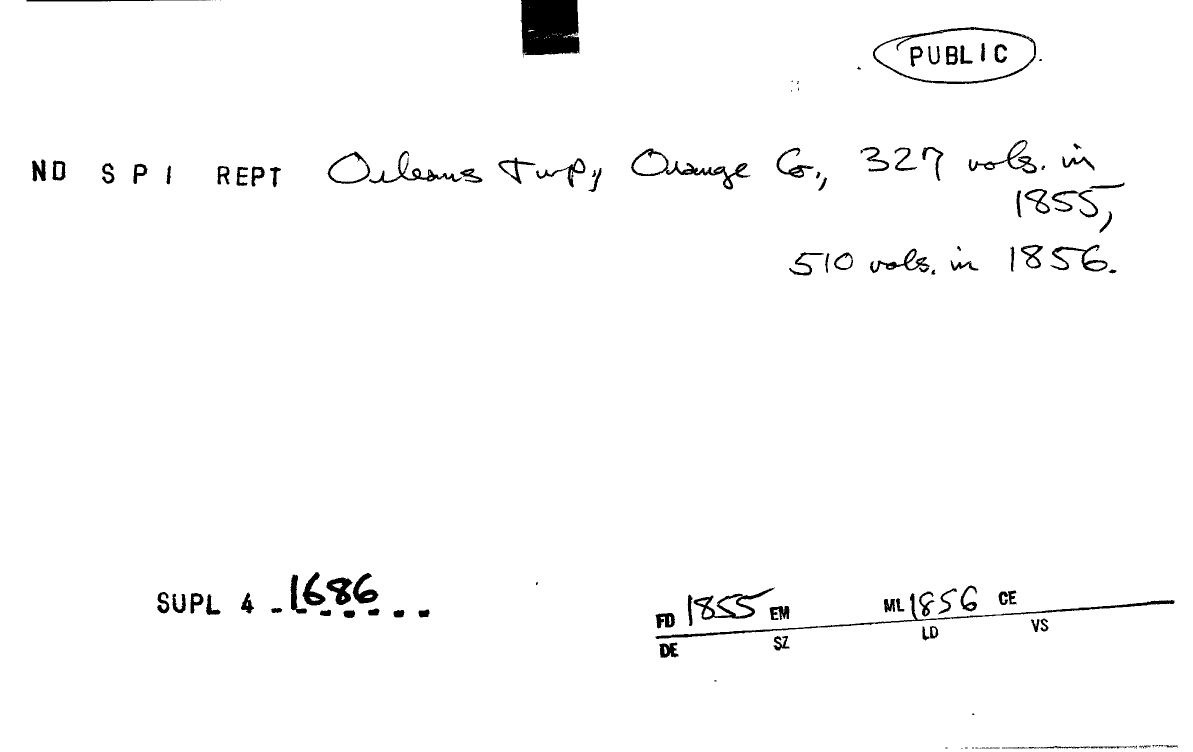 PUBLIC
ND S P I REPT Orleans Twp, Orange Co., 327 vols. in
1855,
510 vols. in 1856.
SUPL 4 - 1686
FD 1855 EM ML 1856 CE
DE SZ LD VS